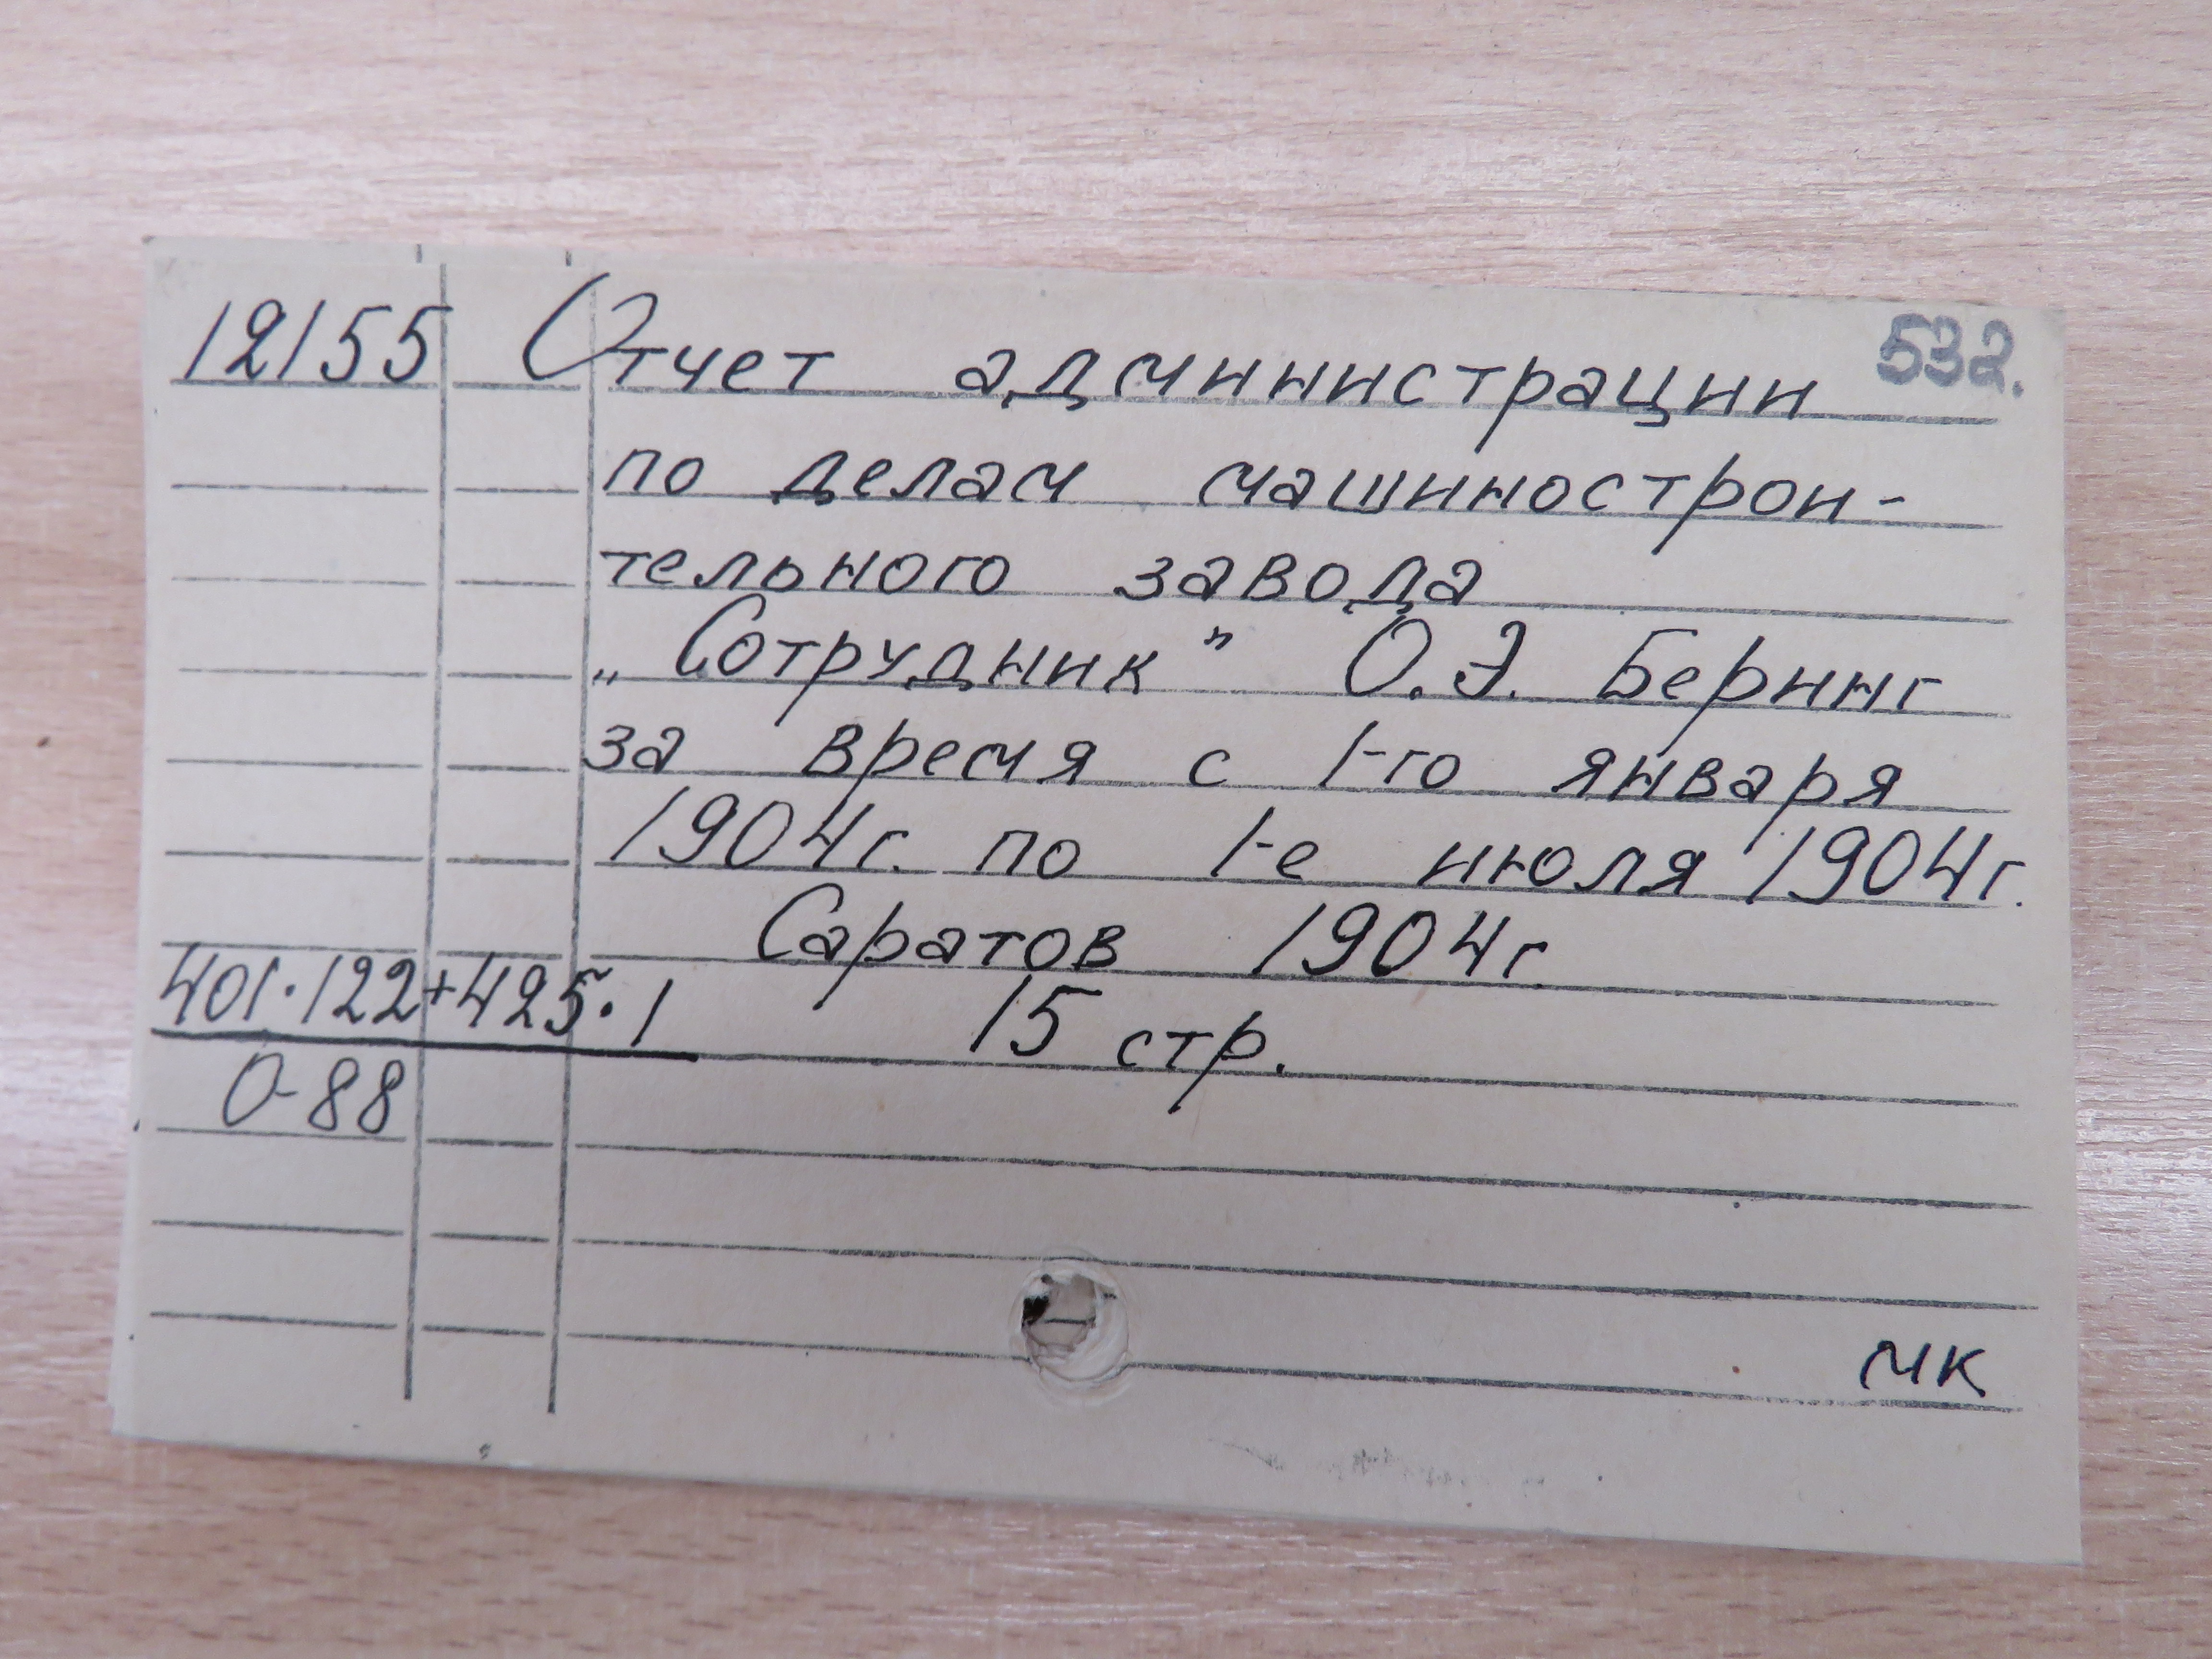 12155 Отчет администрации 532.
по делам машинострои-
тельного завода
„Сотрудник" О.Э. Беринг
за время с 1-го января
1904г. по 1-е июля 1904г.
Саратов 1904г.
401·122+425·1 15 стр.
О-88
мк